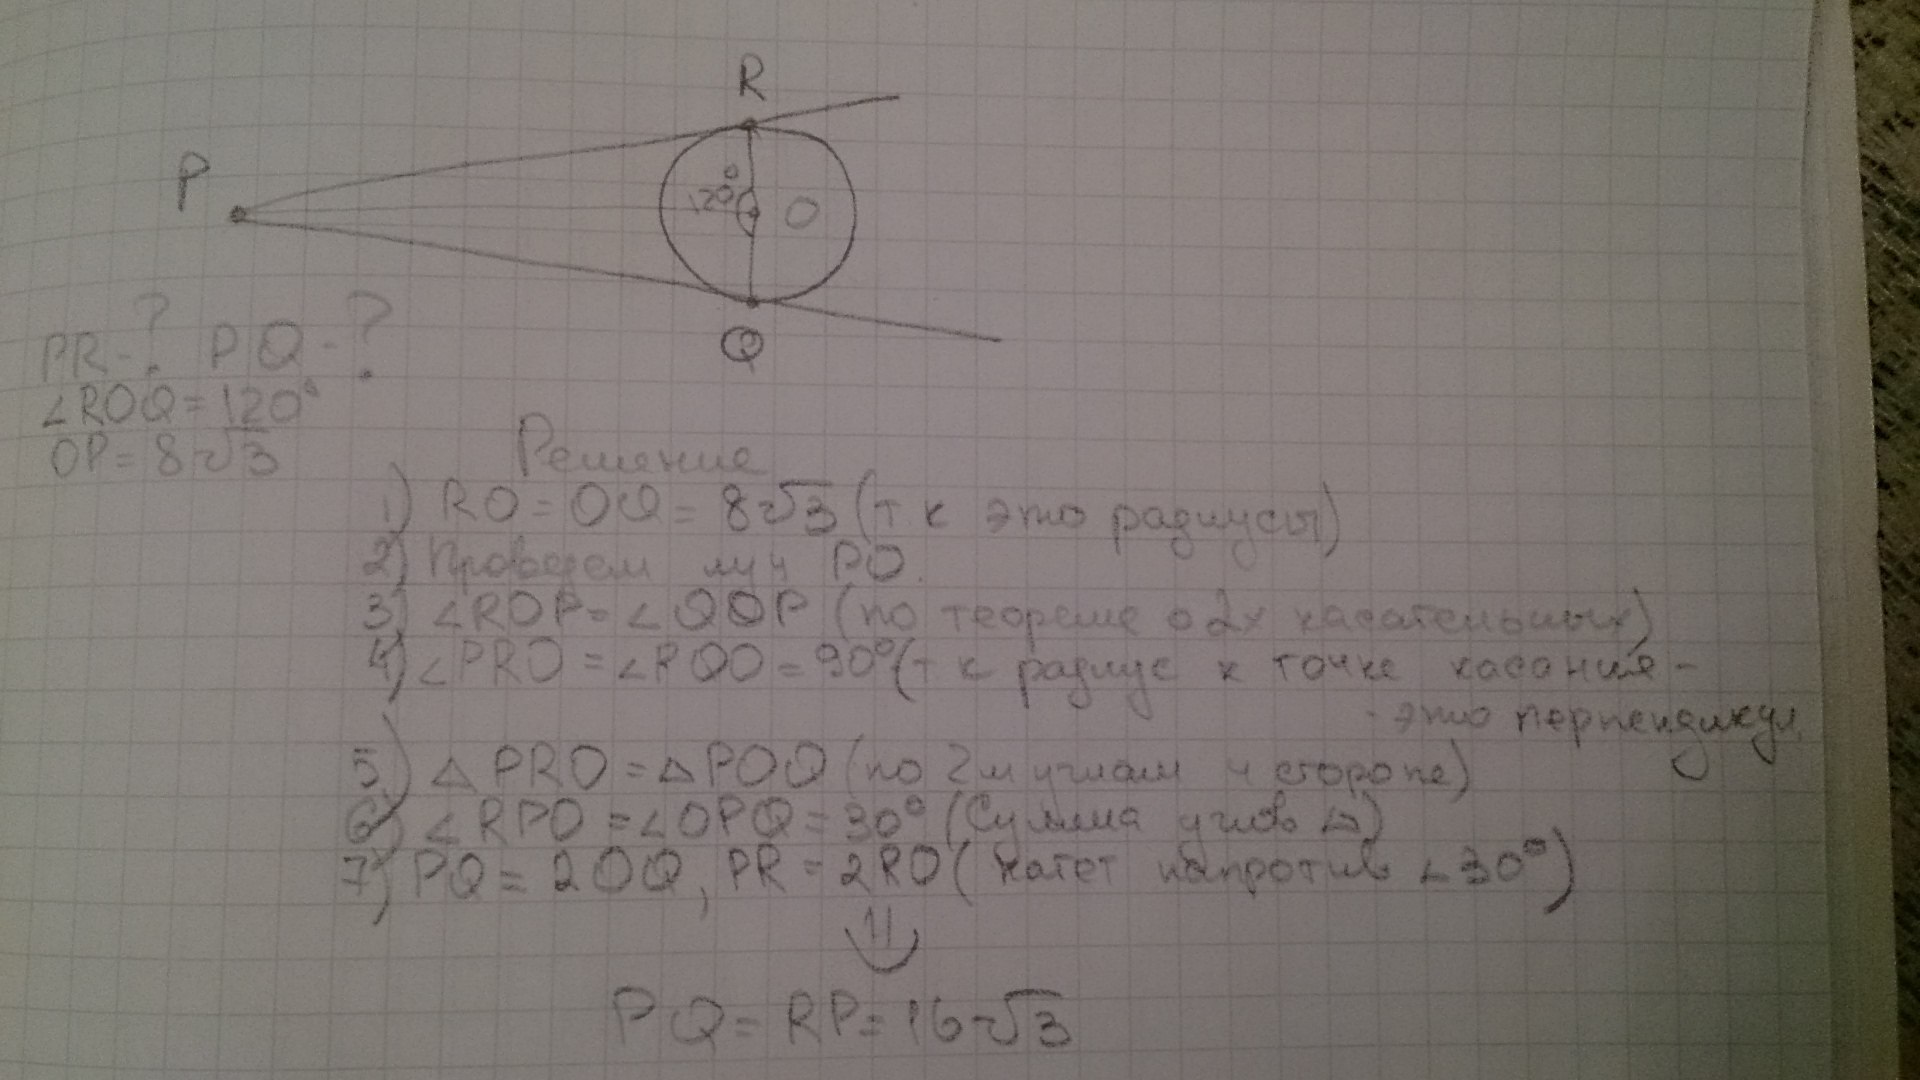 R
P
120°
O
Q
PR-? PQ-?
∠ROQ=120°
OP=8√3
Решение
1) RO=OQ=8√3 (т к это радиусы)
2) Проведем луч PO.
3) ∠ROP=∠QOP (по теореме о 2х касательных)
4) ∠PRO=∠PQO=90° (т к радиус к точке касания-
-это перпендикул.
5) △PRO=△POQ (по 2м углам и стороне)
6) ∠RPO=∠OPQ=30° (Сумма углов △)
7) PQ=2OQ, PR=2RO (катет напротив ∠30°)
PQ=RP=16√3